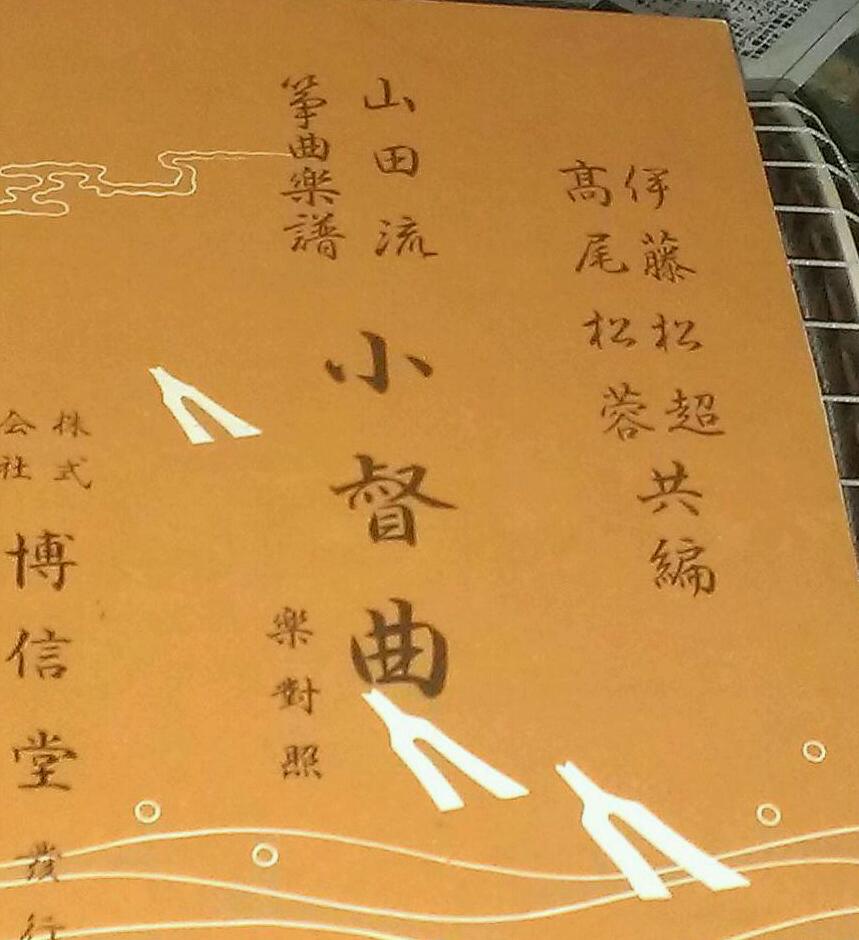 伊藤松超共編
髙尾松蓉
山田流
箏曲樂譜
小督曲
樂對照
株式
会社
博信堂發行